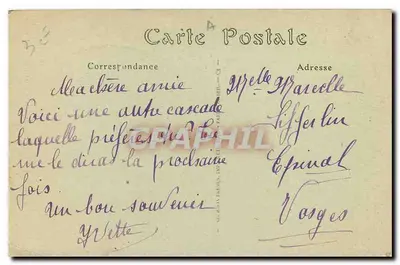 Carte Postale
Correspondance
Adresse
Ma chère amie
Voici une autre cascade
laquelle préfères-tu? tu
me le diras la prochaine
fois
un bon souvenir
Yvette
Melle Marcelle
Sifferlin
Epinal
Vosges
CARTAPHIL